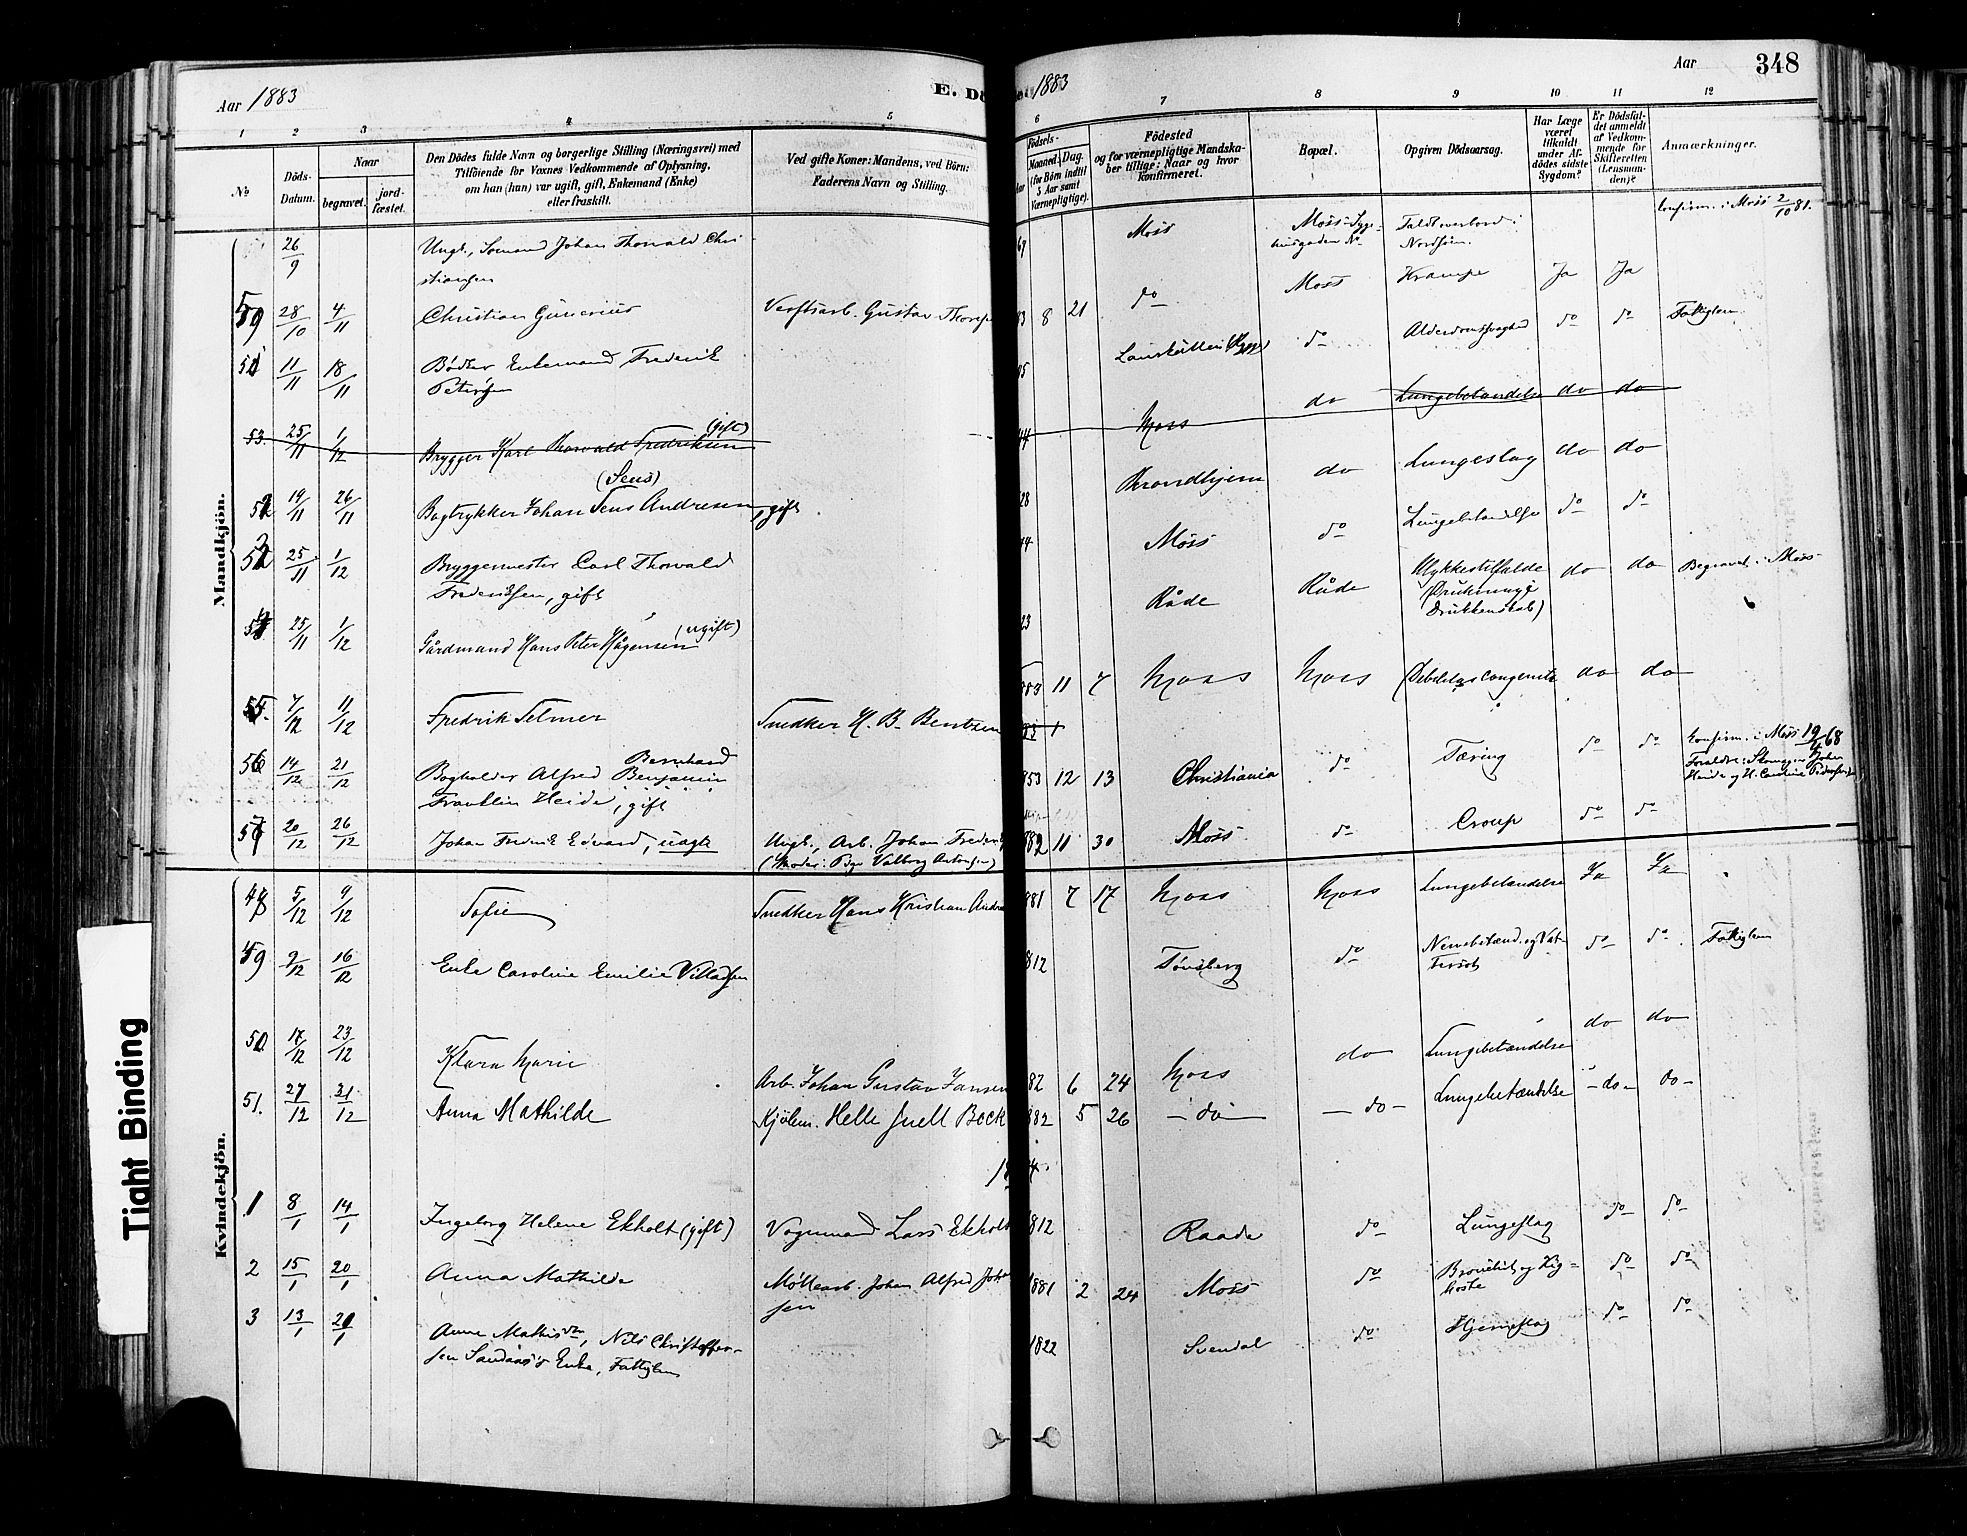 Aar 1883
E. Dö
1883
Aar
348
1 2 3 4 5 6 7 8 9 10 11 12
No
Döds-
Datum.
Naar
begravet.
jord-
fæstet.
Den Dödes fulde Navn og borgerlige Stilling (Næringsvei) med
Tilföiende for Voxnes Vedkommende af Oplysning,
om han (hun) var ugift, gift, Enkemand (Enke)
eller fraskilt.
Ved gifte Koner: Mandens, ved Börn:
Faderens Navn og Stilling.
Födsels-
Maaned. Dag.
(for Börn indtil
5 Aar samt
Værnepligtige).
Födested
og for værnepligtige Mandska-
ber tillige: Naar og hvor
konfirmeret.
Bopæl.
Opgiven Dödsaarsag.
Har Læge
været
tilkaldt
under Af-
dödes sidste
Sygdom?
Er Dödsfal-
det anmeldt
af Vedkom-
mende for
Skifteretten
(Lensman-
den)?
Anmærkninger.
Mandkjön.
26/9 Ungk., Sømand Johan Thorvald Chri-
stiansen
Moss Moss Syge-
husgaden Faldt overbord i
Nordsøen. konfirm. i Moss 2/10 81.
28/10 4/11 Christian Gunerius Verftsarb. Gustav 8 21 do Moss Krampe Ja Ja
11/11 18/11 Bødker Enkemand Frederik
Petersen
do Alderdomssvaghed do do Fattiglem
53. 25/11 1/12 Brygger Karl Thorvald Fredriksen (gift) 44 Moss do Lungebetændelse do do
52 19/11 26/11 Bogtrykker Johan Jens Andresen, gift
(Jens) 28 Throndhjem do Lungeslag do do
25/11 1/12 Bryggermester Carl Thorvald
Frederiksen, gift
44 Moss do Lungebetændelse do do
25/11 1/12 Gårdmand Hans Peter Hågensen (ugift) 23 Råde Råde Ulykkestilfælde
(Drukning i
Drukkenskab) do do Begravet i Moss
55. 7/12 11/12 Fredrik Selmer Snedker H. B. Berntsen 883 11 7 Moss Moss Debilitas congenita do do
56 14/12 21/12 Bogholder Alfred Bernhard Benjamin
Franklin Heide, gift
853 12 13 Christiania do Tæring do do konfirm. i Moss 68
57 20/12 26/12 Johan Fredrik Edvard, uægte Ungk., Arb. Johan Freder
(Moder: Pige Valborg Antonsen)
882 11 30 Moss do Croup do do
Kvindekjön.
48 5/12 9/12 Sofie Snedker Hans Kristian Andre 881 7 17 Moss Moss Lungebetændelse Ja Ja
49 9/12 16/12 Enke Caroline Emilie Villadsen 812 Tønsberg do Nervebetænd. og Vat-
tersot do do Fattiglem
50. 17/12 23/12 Klara Marie Arb. Johan Gustav Jansen 82 6 24 Moss do Lungebetændelse do do
51. 27/12 31/12 Anna Mathilde Kjølem. Helle Juell Bock 882 5 26 - do - - do - Lungebetændelse - do - do -
18 4.
1 8/1 14/1 Ingeborg Helene Ekholt (gift) Vognmand Lars Ekholt 1812 Raade do Lungeslag do do
2 15/1 20/1 Anna Mathilde Møllearb. Johan Alfred Joh
sen
1881 2 24 Moss do Bronchit og Kig-
hoste do do
3 13/1 20/1 Anne Mathisdtr, Nils Christoffer-
sen Sandaas's Enke, Fattiglem
1822 Svendal do Hjerneslag do do
Tight Binding